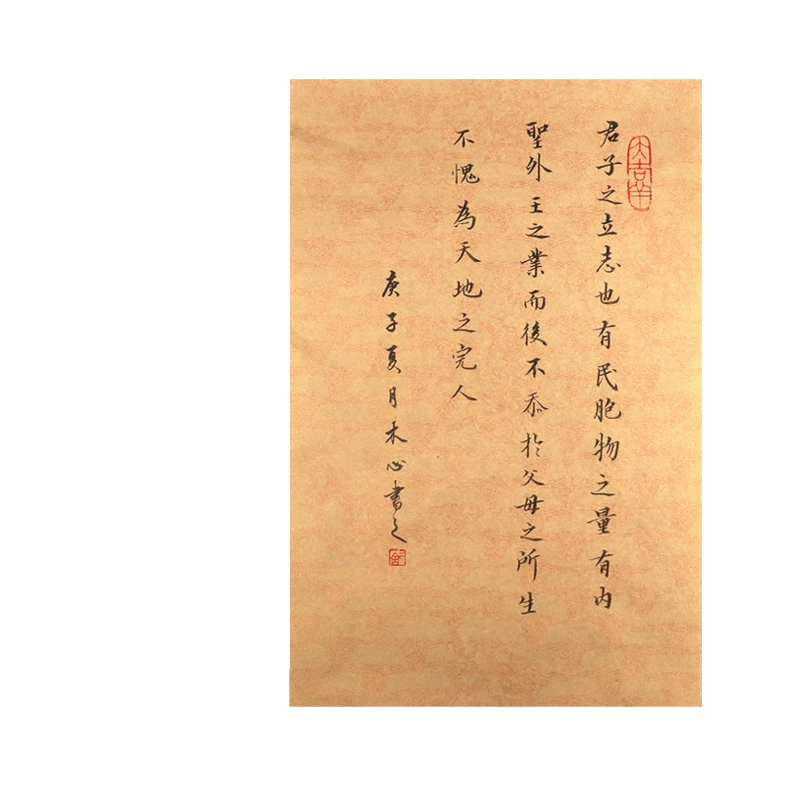 君子之立志也有民胞物之量有内
聖外王之業而後不忝於父母之所生
不愧為天地之完人
庚子夏月禾心書之
大吉羊